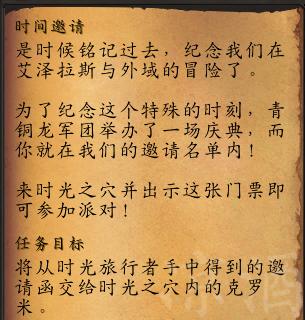 时间邀请
是时候铭记过去，纪念我们在
艾泽拉斯与外域的冒险了。
为了纪念这个特殊的时刻，青
铜龙军团举办了一场庆典，而
你就在我们的邀请名单内！
来时光之穴并出示这张门票即
可参加派对！
任务目标
将从时光旅行者手中得到的邀
请函交给时光之穴内的克罗
米。